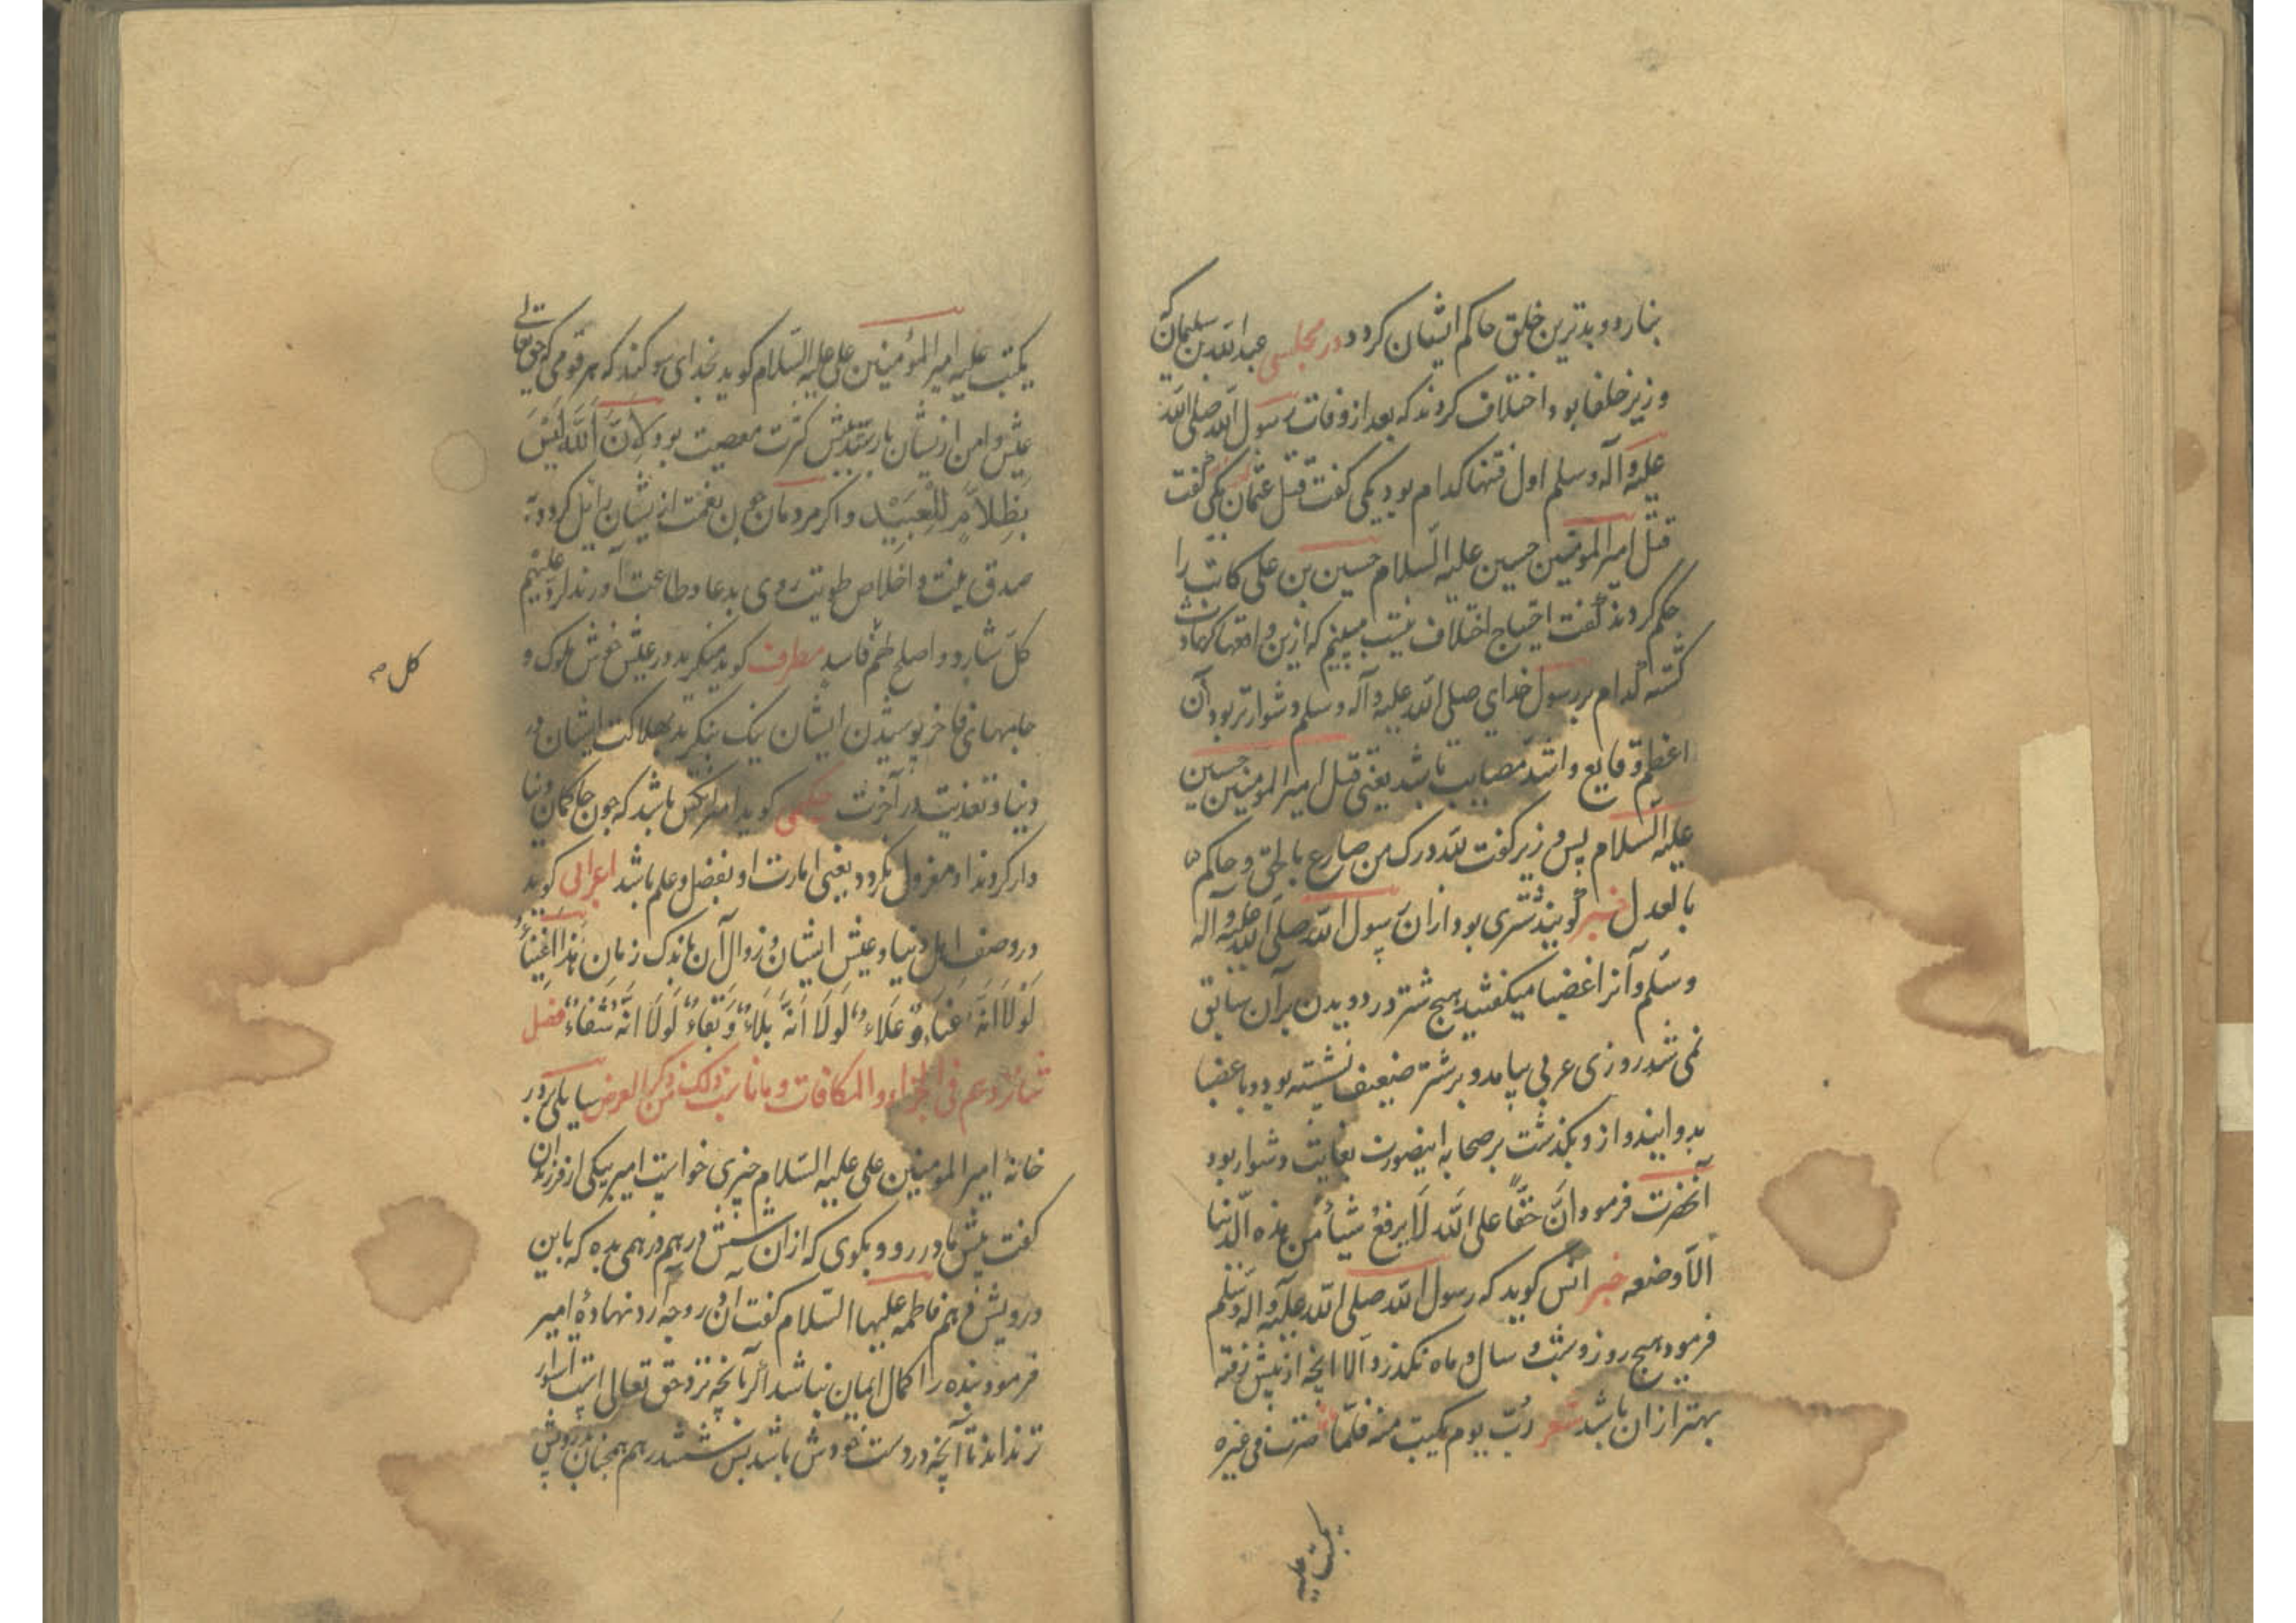 بنارد و بدترین خلق حاکم ایشان کردد در مجلسی عبدالله بن سلیمان که
وزیر خلفا بود اختلاف کردند که بعد از وفات رسول الله صلی الله
علیه و آله و سلم اول فتنها کدام بود یکی کفت قتل عثمان یکی کفت
قتل امیر المومنین حسین علیه السلام حسین بن علی کاتب را
حکم کردند کفت احتیاج اختلاف نیست ببینیم که ازین واقعها که حادث
کشته کدام بر رسول خدای صلی الله علیه و آله و سلم دشوارتر بود آن
اعظم وقایع و اشد مصایب باشد یعنی قتل امیر المومنین حسین
علیه السلام پس وزیر کفت لله درک من صارع بالحق و حاکم
بالعدل خبر کویند شتری بود از ان رسول الله صلی الله علیه و آله
وسلم و آنرا غضبا میکفتند هیچ شتر در دویدن بر آن سابق
نمی شد روزی عربی بیامد و بر شتر ضعیف نشسته بود و با عضبا
بدوانید و از و بکذشت بر صحابه اینصورت بغایت دشوار بود
آنحضرت فرمود ان حقا علی الله لا یرفع شیأ من هذه الدنیا
الا وضعه خبر انس کوید که رسول الله صلی الله علیه و اله وسلم
فرمود هیچ روز و شب و سال و ماه نکذرد الا انچه از پیش رفته
بهتر از ان باشد شعر رب یوم بکیت منه فلما صرت فی غیره
بکیت علیه
یکبت علیه امیر المؤمنین علی علیه السلام کوید بخدای سوکند که هر قومی که حق تعالی
عیش و امن ازیشان باز ستد بیش کثرت معصیت بود لان الله لیس
بظلام للعبید و اکر مردمان چون نعمت ازیشان زایل کردد به
صدق نیت و اخلاص طویت روی بدعا و طاعت آورند لرد علیهم
کل شارد و اصلح لهم فاسد مطرف کوید منکرید در عیش خوش ملوک و
کل صح
جامهای فاخر پوشیدن ایشان نیک بنکرید بهلاکت ایشان در
دنیا و تعذیب در آخرت حکیمی کوید امیر انکس باشد که چون حاکمان دنیا
دار کردند او معزول نکردد یعنی امارت او بفضل و علم باشد اعرابی کوید
در وصف اهل دنیا و عیش ایشان و زوال آن باندک زمان هذا اغنیاء
لولا انه عناء و علاء لولا انه بلاء و بقاء لولا انه شقاء فصل
فی الجزاء و المکافات و ما ناسب ذلک و ذکر العرض سایلی بر در
خانهٔ امیر المومنین علی علیه السلام چیزی خواست امیر بیکی از فرزندان
کفت پیش مادر رو و بکوی که ازان شش درهم درهمی بده که باین
درویش دهم فاطمه علیها السلام کفت آن در وجه آرد نهادهٔ امیر
فرمود بنده را کمال ایمان نباشد اکر بآنچه نزد حق تعالی است استوار
تر نداند تا آنچه در دست خودش باشد پس شش درهم همچنان بدرویش